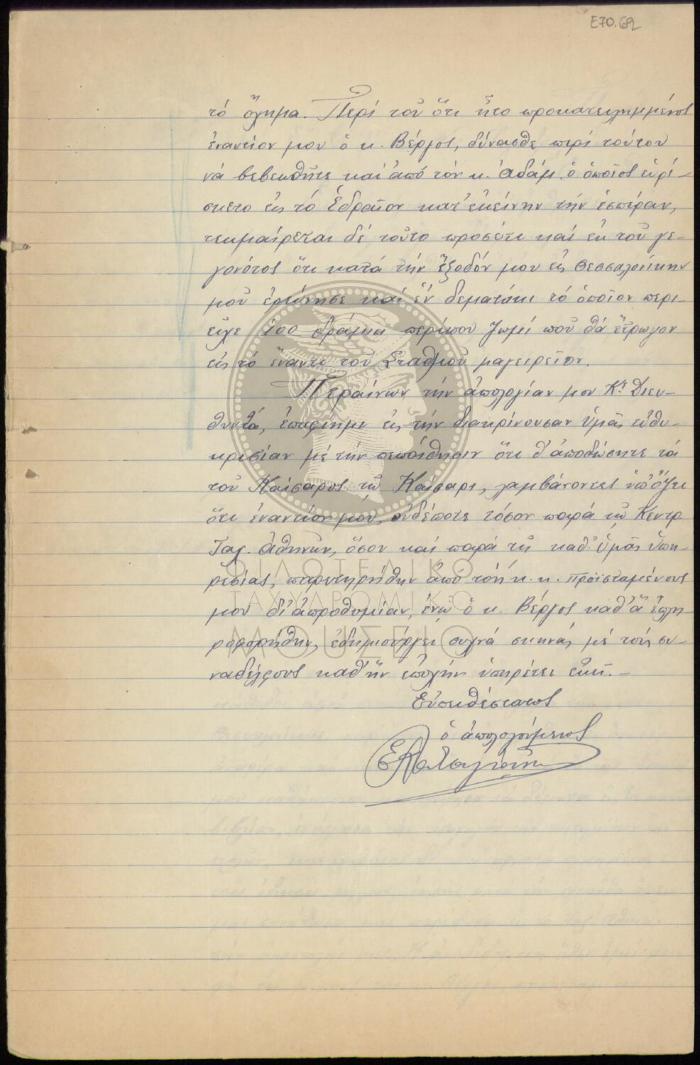 Ε70.62
τό ὄχημα. Περί τοῦ ὅτι ἦτο προκατειλημμένος
ἐναντίον μου ὁ κ. Βέργος, δύνασθε περί τούτου
νά βεβαιωθῆτε καί ἀπό τόν κ. Ἀδάμ, ὁ ὁποῖος εὑρί
σκετο εἰς τό Ἑδραῖον κατ' ἐκείνην τήν ἑσπέραν,
τεκμαίρεται δέ τοῦτο προσέτι καί ἐκ τοῦ γε-
γονότος ὅτι κατά τήν ἔξοδόν μου εἰς Θεσσαλονίκην
μοῦ ἠρεύνησε καί ἕν δεματάκι τό ὁποῖον περι
εῖχε 100 δράμια περίπου ψωμί πού θά ἔτρωγον
εἰς τό ἔναντι τοῦ Σταθμοῦ μαγειρεῖον.
Περαίνων τήν ἀπολογίαν μου Κε Διευ-
θυντά, ἐπαφίεμαι εἰς τήν διακρίνουσαν Ὑμᾶς εὐθυ-
κρισίαν μέ τήν πεποίθησιν ὅτι θ' ἀποδώσητε τά
τοῦ Καίσαρος τῷ Καίσαρι, λαμβάνοντες ὑπ' ὄψει
ὅτι ἐναντίον μου, οὐδέποτε τόσον παρά τῷ Κεντρ.
Ταχ. Ἀθηνῶν, ὅσον καί παρά τῇ καθ' Ὑμᾶς ὑπη-
ρεσίας, παρετηρήθην ἀπό τούς κ.κ. Προϊσταμένους
μου δι' ἀπροθυμίαν, ἐνῶ ὁ κ. Βέργος καθ' ἅ ἐπλη
ροφορήθην, ἐδημιούργει συχνά σκηνάς μέ τούς συ-
ναδέλφους καθ' ἥν ἐποχήν ὑπηρέτει ἐκεῖ.-
Εὐπειθέστατος
ὁ ἀπολογούμενος
ΦΙΛΟΤΕΛΙΚΟ
ΤΑΧΥΔΡΟΜΙΚΟ
ΜΟΥΣΕΙΟ